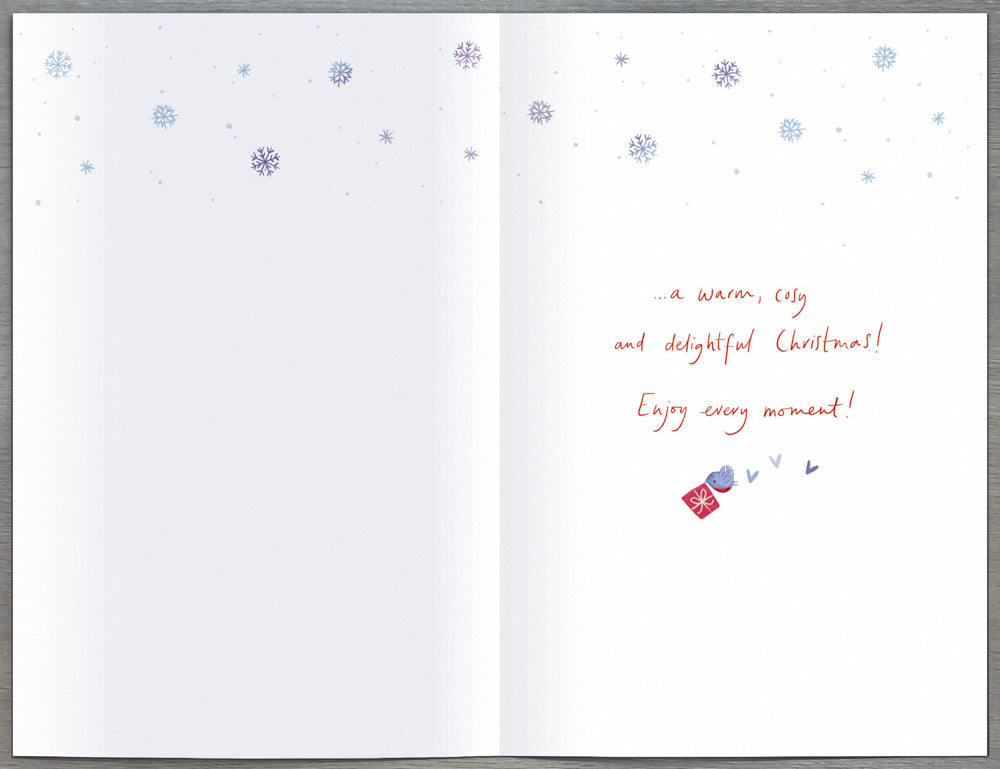 ...a warm, cosy
and delightful Christmas!
Enjoy every moment!